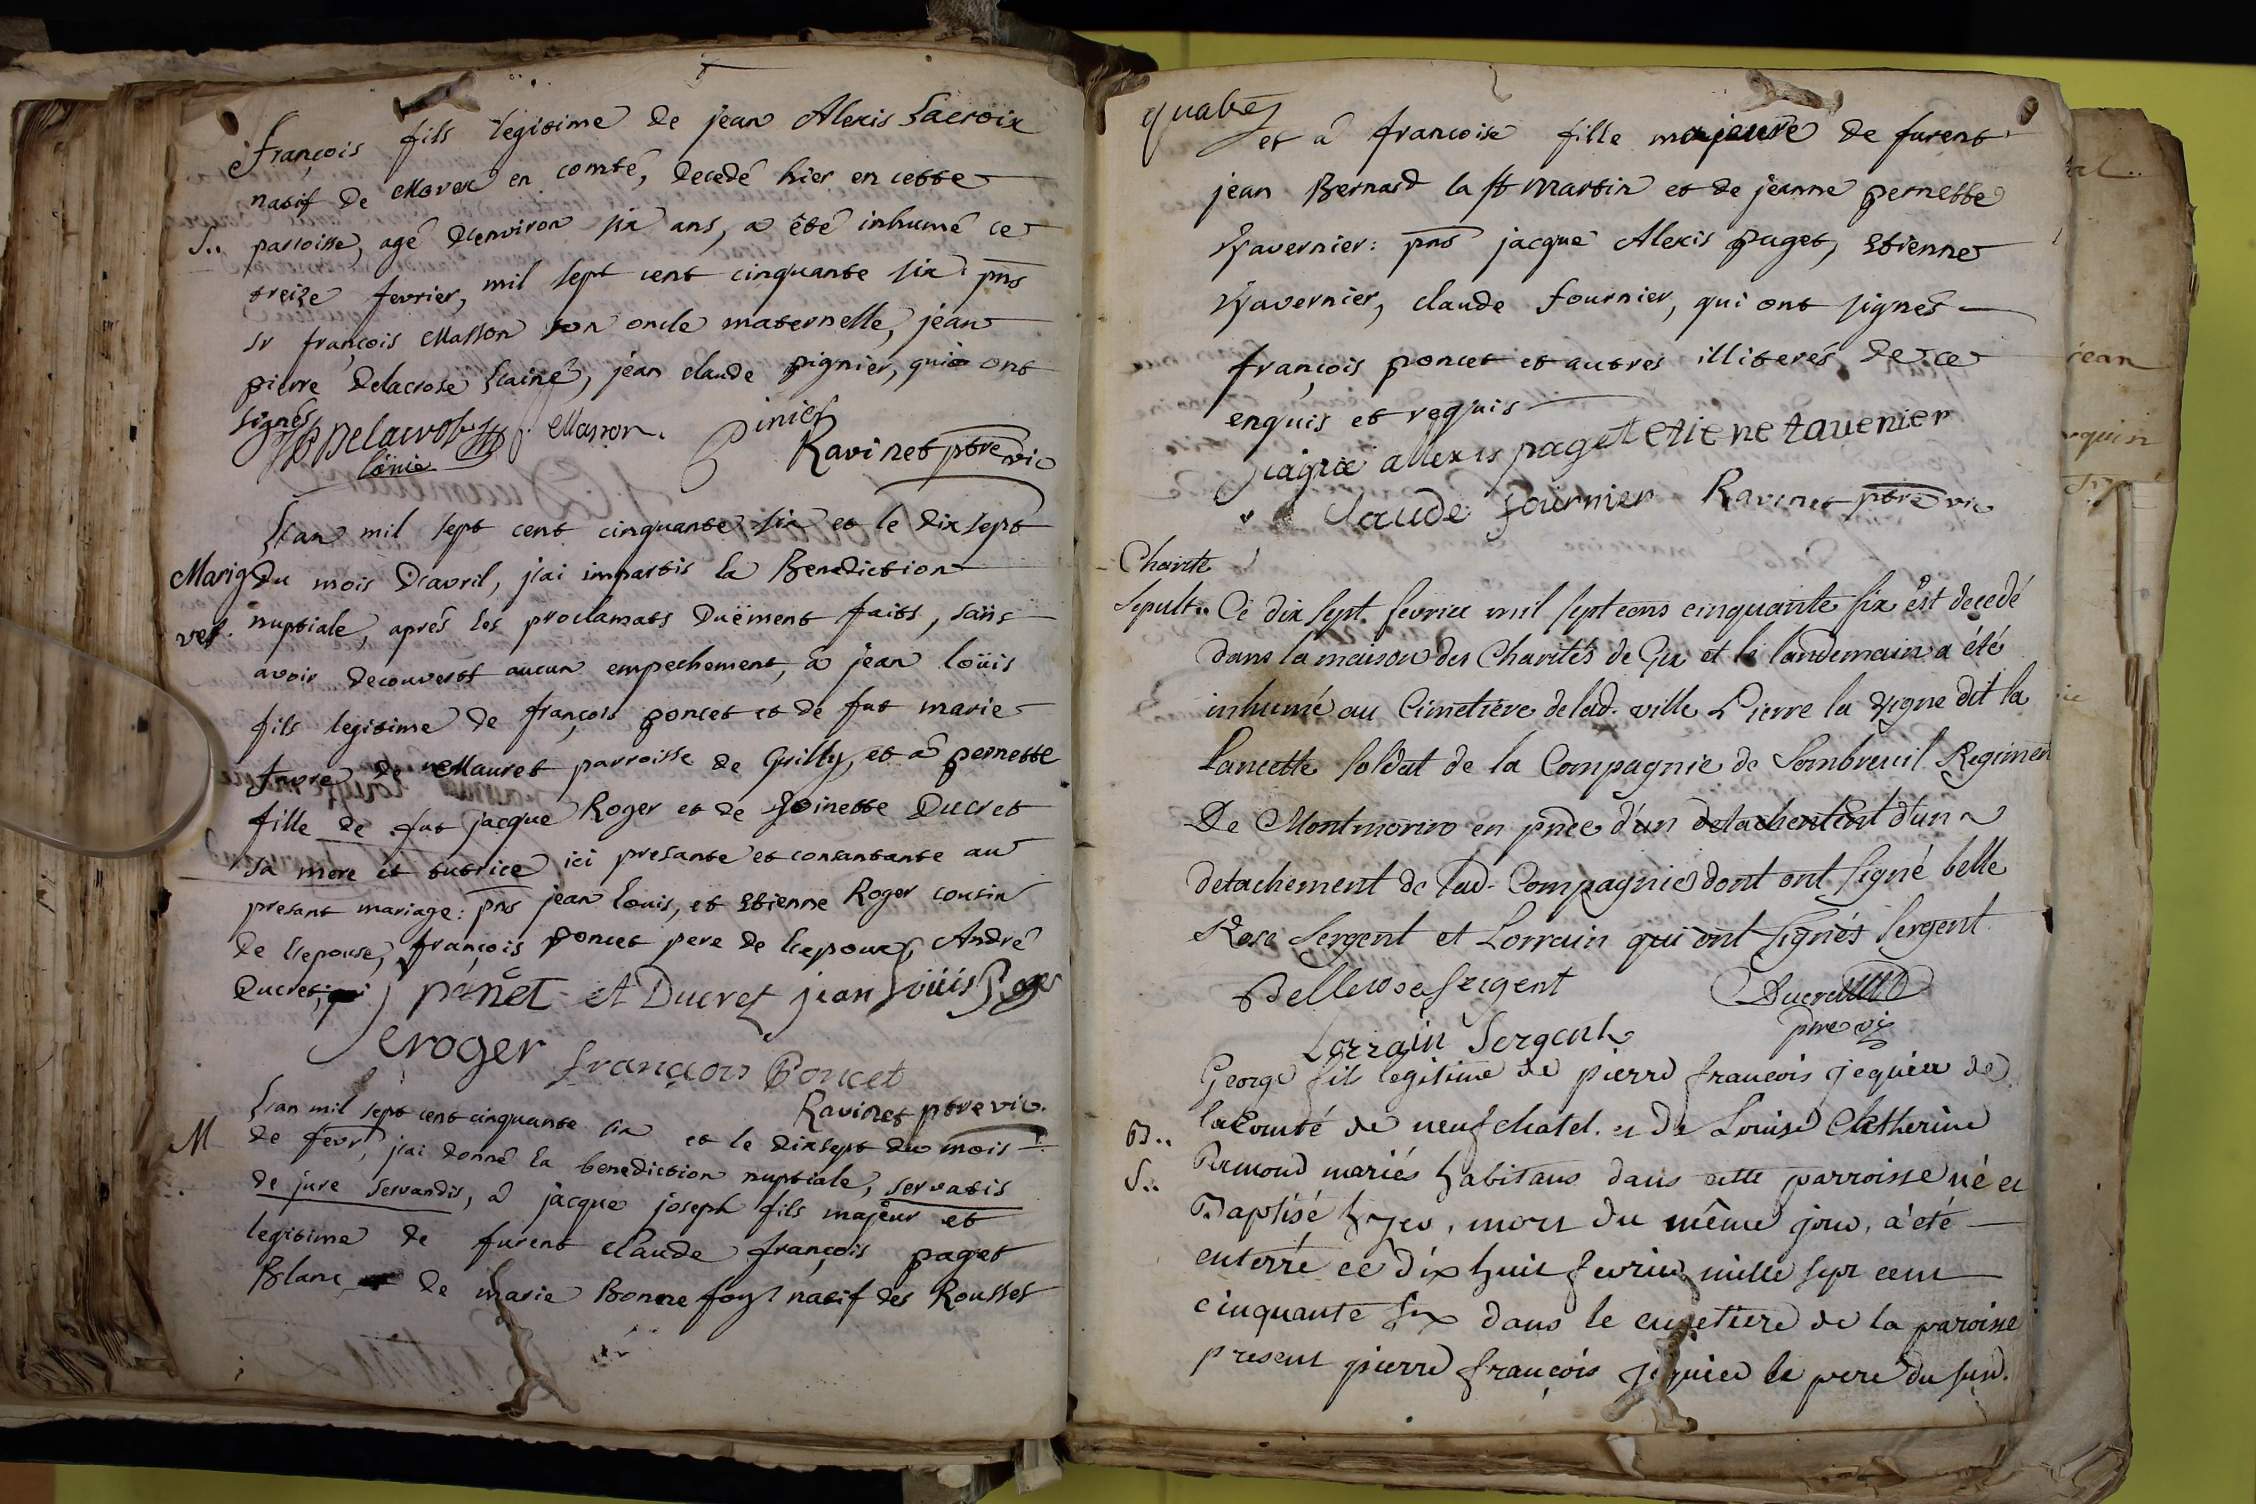 François fils legitime de jean Alexis Lacroix
natif de Morex en comté, decedé hier en cette
S.. parroisse, agé d'environ six ans, a êté inhumé ce
treize fevrier, mil sept cent cinquante six. pns
sr françois Masson son oncle maternelle, jean
pierre Delacrose l'ainé, jéan claude pignier, qui ont
signés
JP Delacrose Masson. Pinier
Ravinet ptre vic
L'an mil sept cent cinquante six et le dix sept
Marig du mois d'avril, j'ai impartis la Benediction
nuptiale, aprés les proclamats Duëment faits, sans
avoir decouverts aucun empechement, à jean loüis
fils legitime de françois poncet et de fut marie
favre de Mauret parroisse de Grilly, et à pernette
fille de fut jacque Roger et de Toinette Ducret
sa mere et tutrice ici presante et consantante au
presant mariage: pns jean louis, et Etienne Roger cousin
de l'epouse, françois poncet pere de l'epoux, André
Ducret, qui panet A Ducret jean Loüis Roger
E roger françois Poncet
Ravinet ptre vic.
L'an mil sept cent cinquante six et le dixsept du mois
M de fevr, j'ai donné la benediction nuptiale, servatis
de jure servandis, à jacque joseph fils majeur et
legitime de furent claude françois paget
Blanc de marie Bonnefoy natif des Rousses
et à francoise fille majeure de furent
jean Bernard la st martin et de jeanne pernette
Tavernier: pns jacque Alexis paget, Etienne
Tavernier, claude fournier, qui ont signés
françois poncet et autres illiterés de ce
enquis et requis
Jaque allexis paget etiene tavenier
Claude fournier Ravinet ptre vic
Charité
Sepult.. Ce dix sept. fevrier mil sept cens cinquante six est decedé
dans la maison des Charités de Gex et le landemain a été
inhumé au Cimetiére de lad. ville Pierre la vigne dit la
Lancette soldat de la Compagnie de Sombreuil Regimen
De Montmorin en pnce d'un detachement d'un
detachement de lad. Compagnie dont ont signé belle
Rose Sergent et Lorrain qui ont signés sergent.
Bellerose Sergent Ducret
Lorrain Sergent ptre vic
George fils legitime de pierre francois jequier de
B.. la Comté de neufchatel. et de Louise Catherine
S.. Armond mariés habitans dans cette parroisse né et
Baptisé hyer, mort du même jour, a été
enterré ce dix huit fevrier mille sept cent
cinquante six dans le cimetiere de la paroisse
present pierre françois jequier le pere du susd.